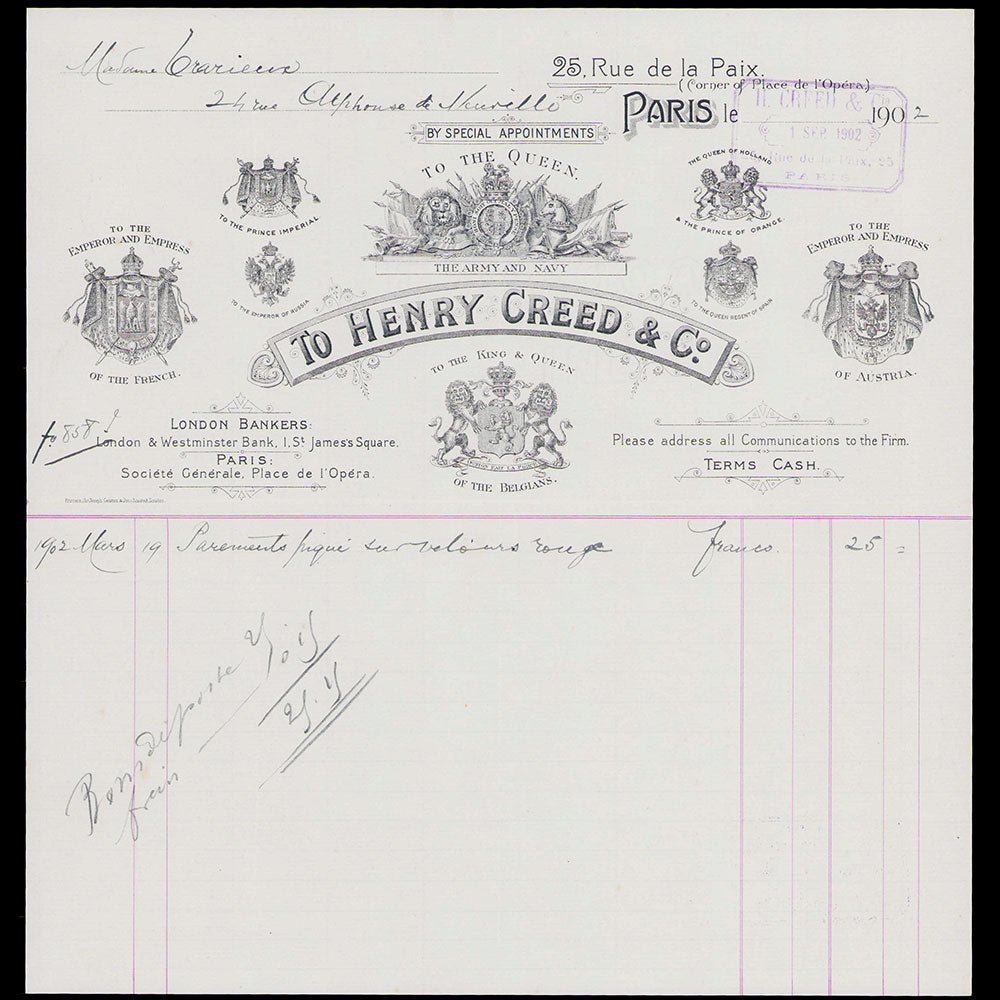 Madame Trarieux
24 rue Alphonse de Neuville
25, Rue de la Paix.
(Corner of Place de l'Opéra)
PARIS le 1902
H. CREED & Cie
1 SEP. 1902
Rue de la Paix, 25
PARIS
BY SPECIAL APPOINTMENTS
TO THE QUEEN.
THE ARMY AND NAVY
TO THE PRINCE IMPERIAL
THE QUEEN OF HOLLAND
& THE PRINCE OF ORANGE.
TO THE EMPEROR AND EMPRESS
OF THE FRENCH.
TO THE EMPEROR OF RUSSIA
TO THE QUEEN REGENT OF SPAIN
TO THE EMPEROR AND EMPRESS
OF AUSTRIA.
TO HENRY CREED & Co.
TO THE KING & QUEEN
OF THE BELGIANS.
fo 858
LONDON BANKERS:
London & Westminster Bank, 1, St James's Square.
PARIS:
Société Générale, Place de l'Opéra.
Please address all Communications to the Firm.
TERMS CASH.
1902 Mars 19 Parements piqué sur velours rouge francs. 25 =
Bon de poste 25
frais 0 15
25.15